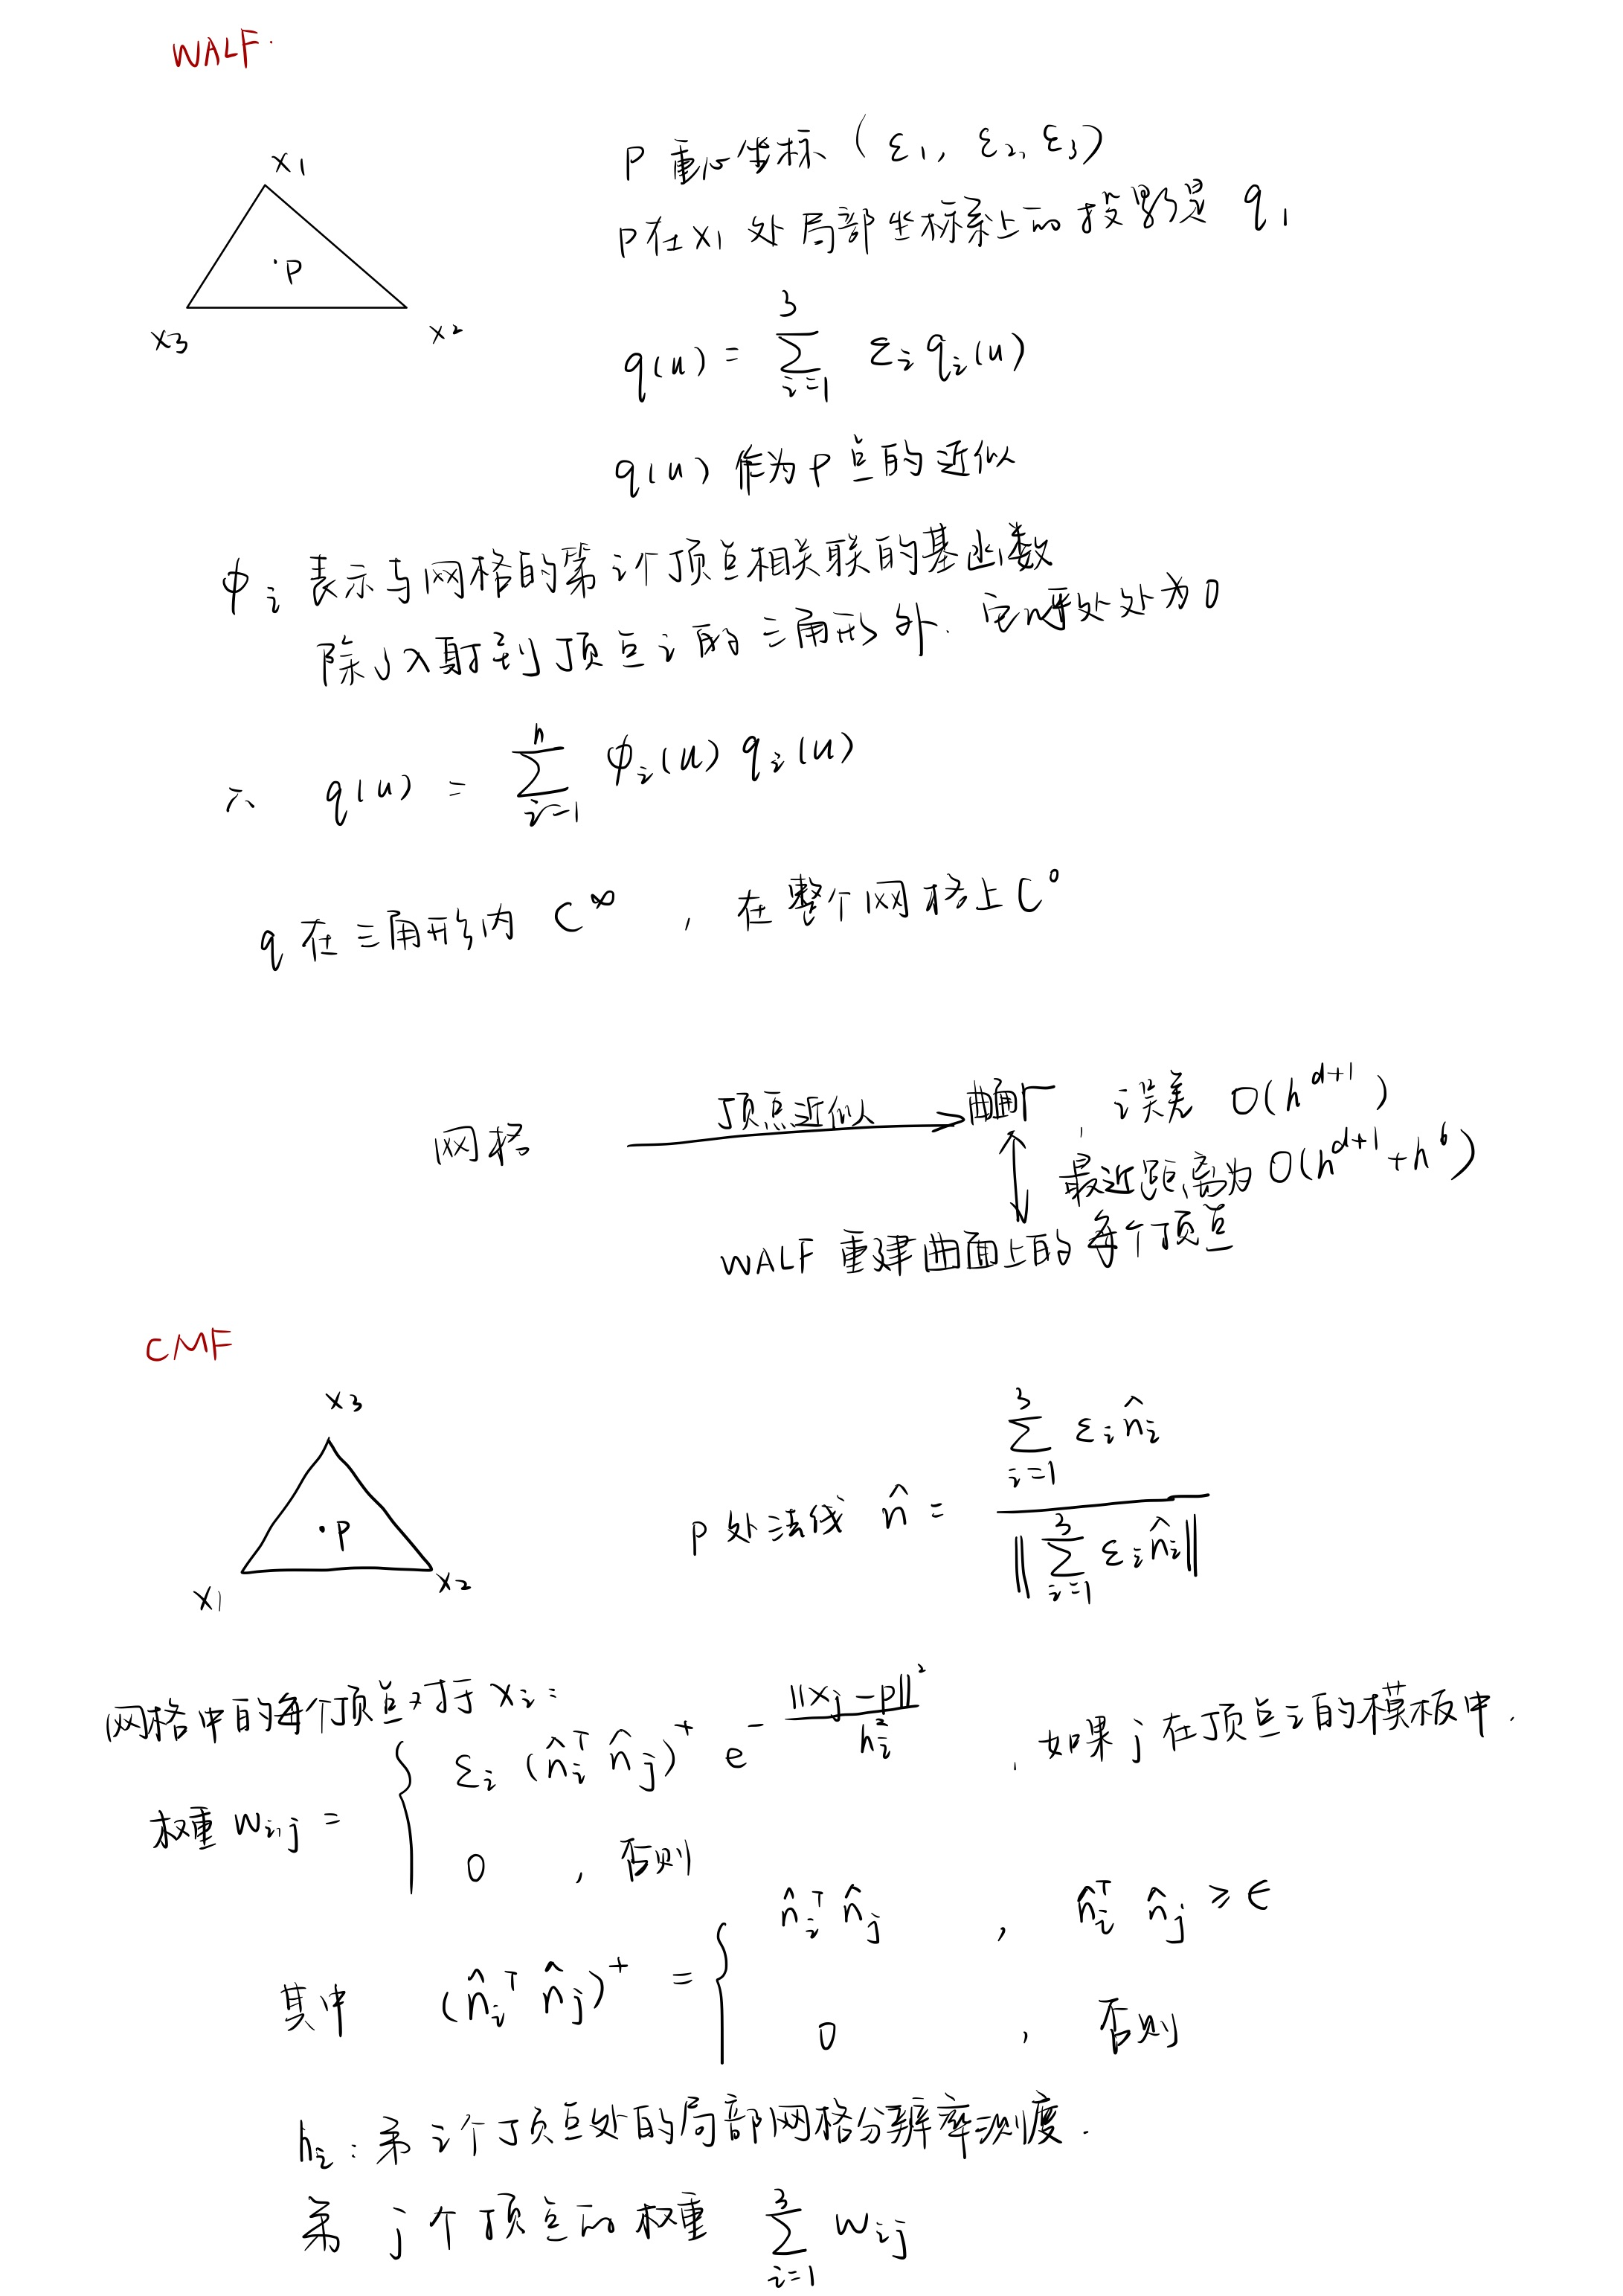 WALF.
x1
x3
x2
·P
P 重心坐标 (ε1, ε2, ε3)
P在x1 处局部坐标系上的投影是 q1
q(u) = ∑_{i=1}^{3} ε_i q_i(u)
q(u) 作为P点的近似
φ_i 表示与网格的第i个顶点相关联的基函数
除了入射到顶点i的三角形外. 它几乎处处为0
∴ q(u) = ∑_{i=1}^{n} φ_i(u) q_i(u)
q 在三角形内 C^∞ , 在整个网格上 C^0
网格 顶点近似 曲面Γ , 误差 O(h^{d+1})
最近距离为 O(h^{d+1}+h^6)
WALF 重建曲面上的每个顶点
CMF
x3
·P
x1
x2
P 处法线 n̂ = ∑_{i=1}^{3} ε_i n̂_i / ‖∑_{i=1}^{3} ε_i n̂_i‖
网格中的每个顶点对于x_i:
权重 w_{ij} = { ε_i (n̂_i^T n̂_j)^+ e^{-‖x_j-p‖^2 / h_i^2} , 如果 j 在顶点i的模板中.
0 , 否则
其中 (n̂_i^T n̂_j)^+ = { n̂_i^T n̂_j , n̂_i^T n̂_j ≥ ϵ
0 , 否则
h_i : 第 i个顶点处的局部网格分辨率测度.
第 j 个顶点的权重 ∑_{i=1}^{3} w_{ij}